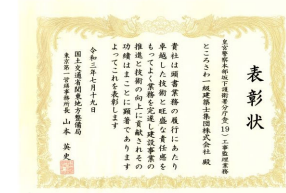 表彰状
皇宮警察本部坂下護衛署分庁舎(19)工事監理業務
ところさわ一級建築士集団株式会社 殿
貴社は頭書業務の履行にあたり
卓越した技術と旺盛な責任感を
もってよく業務を完遂し建設事業の
推進と技術の向上に貢献されその
功績はまことに顕著であります
よってこれを表彰します
令和三年七月十九日
国土交通省関東地方整備局
東京第一営繕事務所長 山本英史